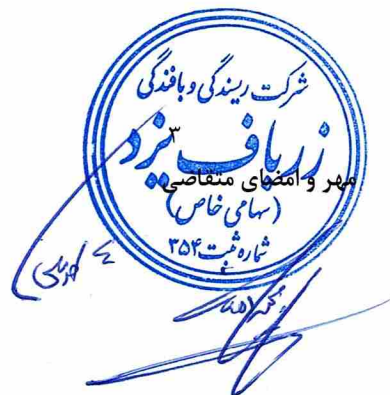 شرکت ریسندگی و بافندگی
۳
زرباف یزد
مهر و امضای متقاضی
(سهامی خاص)
شماره ثبت ۳۵۴